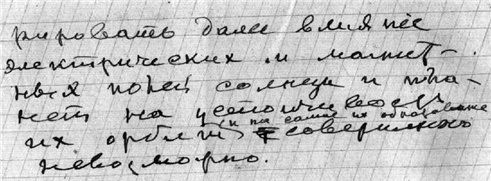 рировать даже влияние
электрических и магнит-
ных полей солнца и пла-
нет на устойчивость
(и на самое их образование
их орбит совершенно
невозможно.